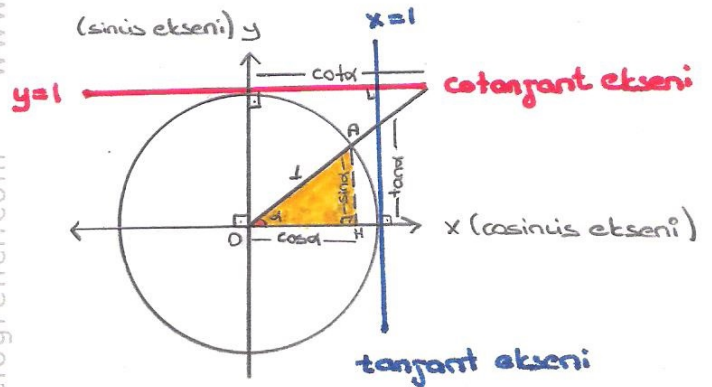 (sinüs ekseni) y
x=1
cotα
y=1
cotanjant ekseni
A
1
sinα
tanα
α
O
cosα
H
x (cosinüs ekseni)
tanjant ekseni